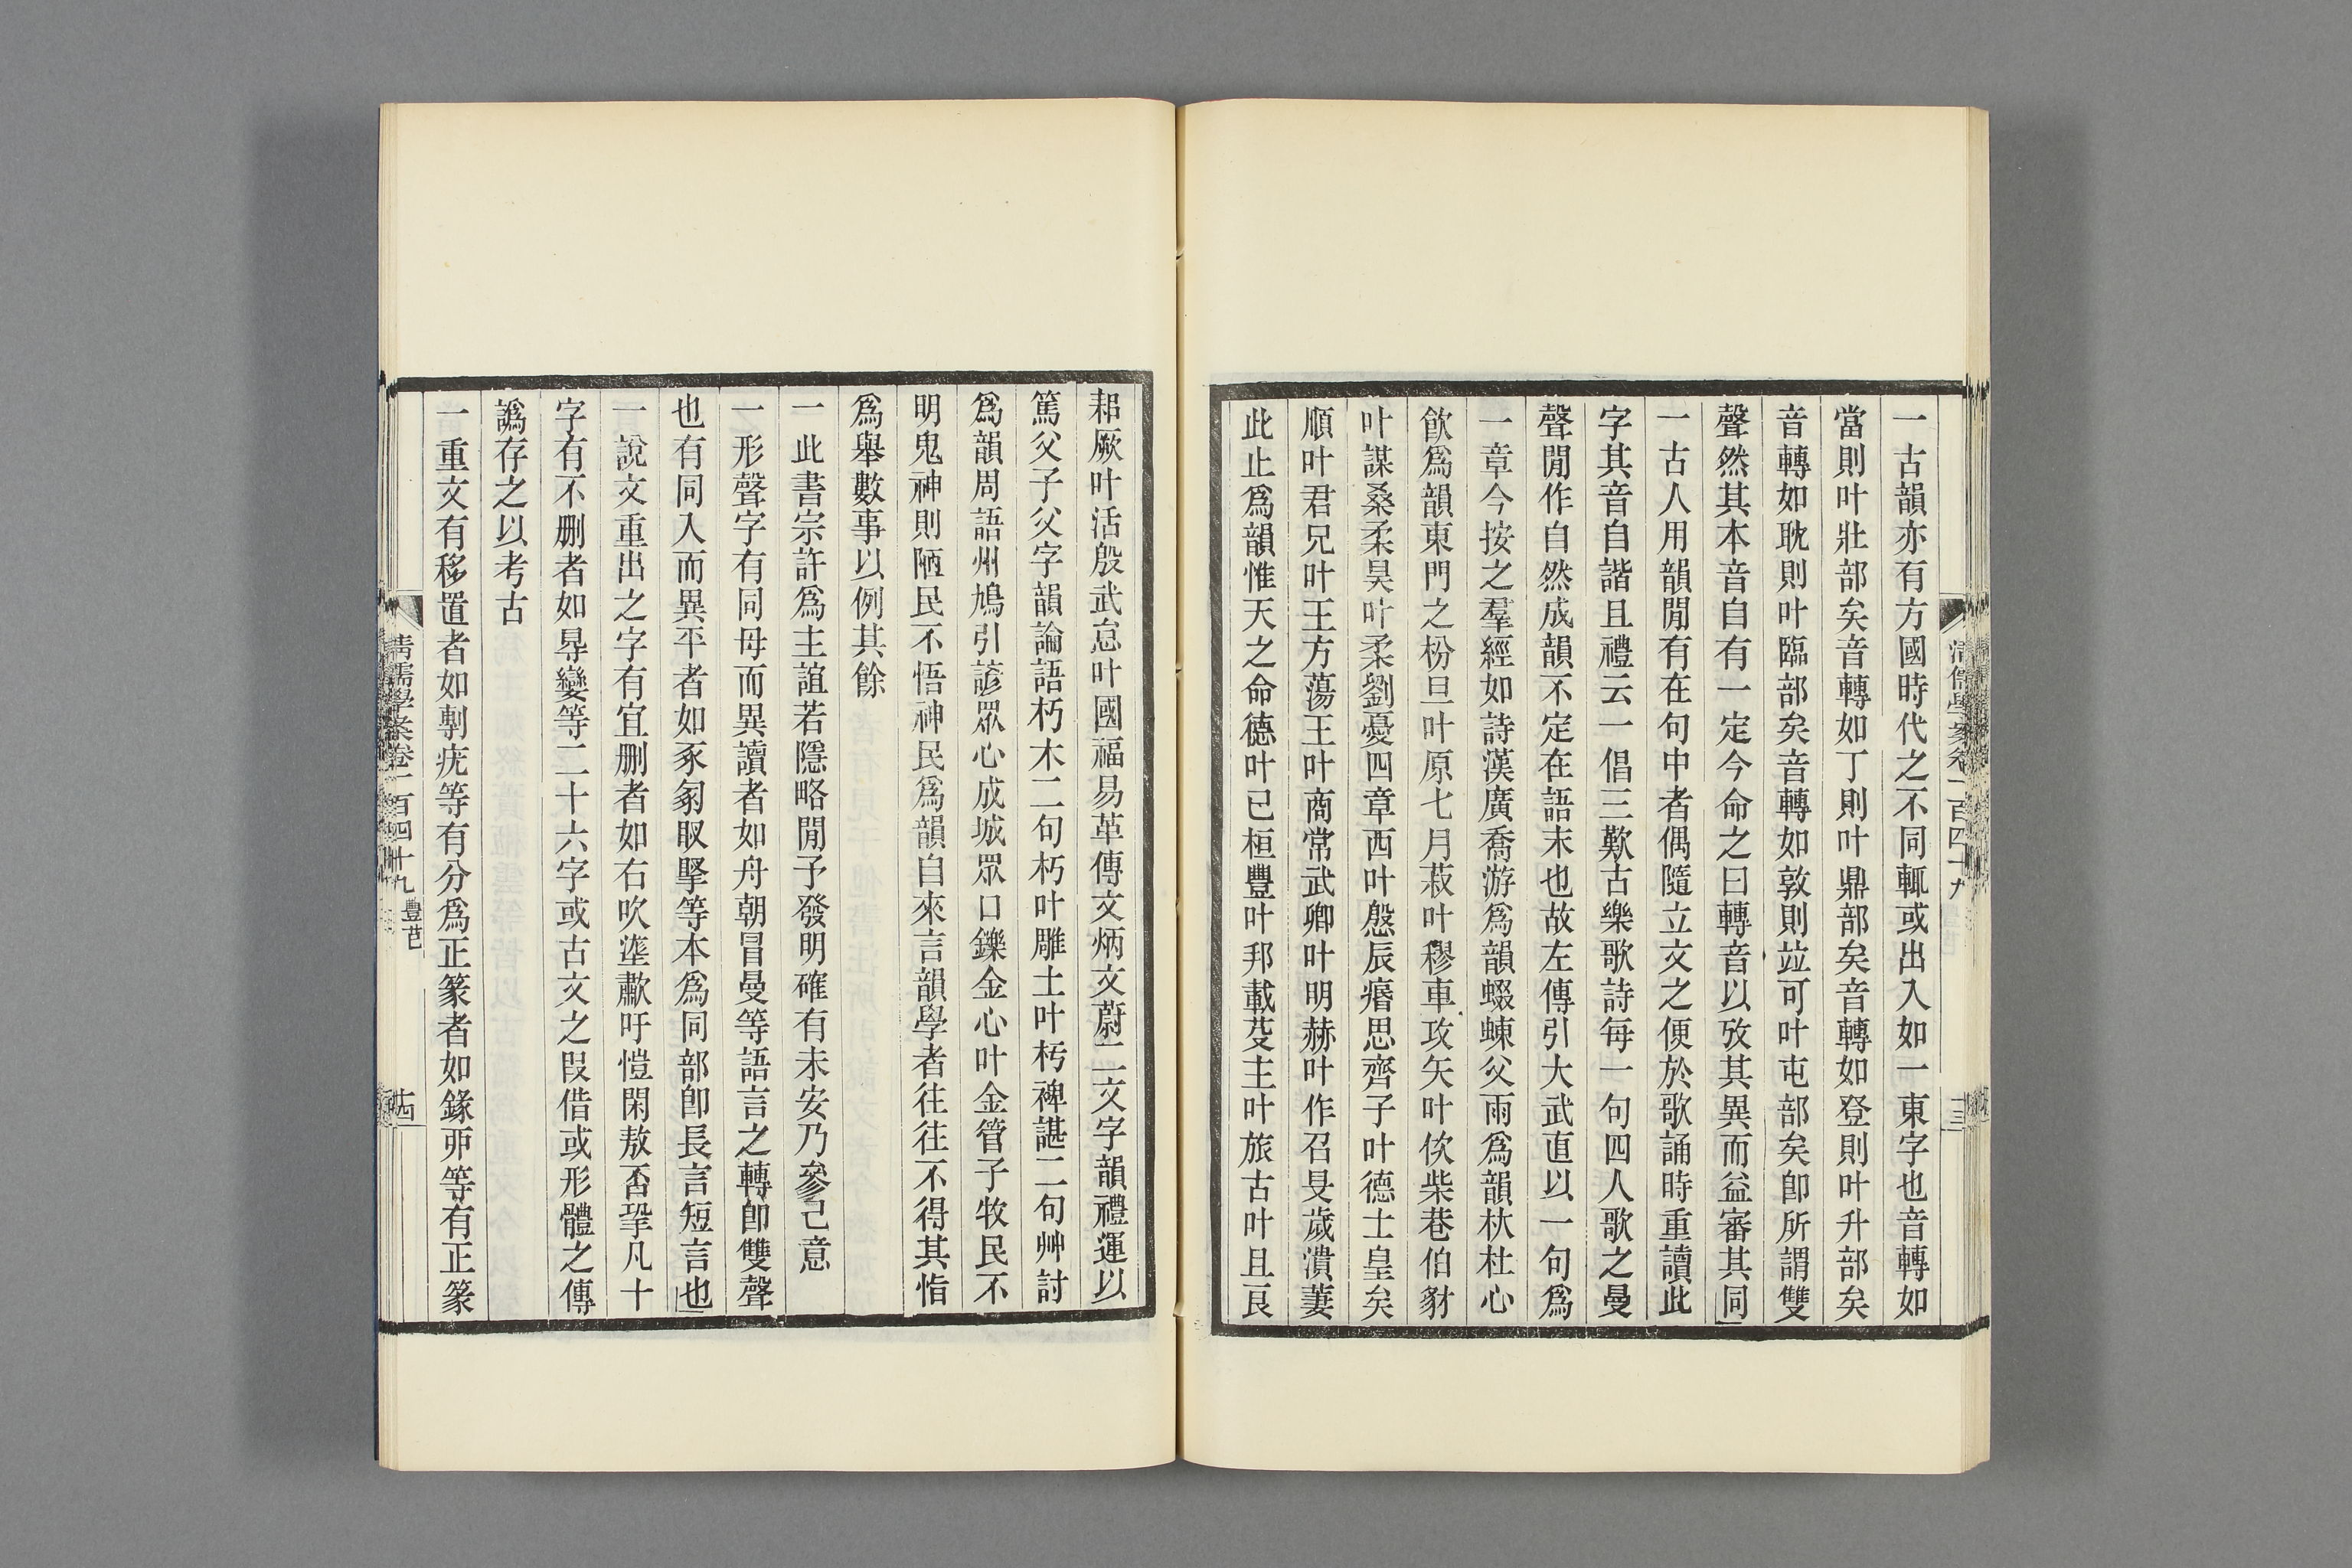 一古韻亦有方國時代之不同輒或出入如一東字也音轉如
當則叶壯部矣音轉如丁則叶鼎部矣音轉如登則叶升部矣
音轉如耽則叶臨部矣音轉如敦則竝可叶屯部矣卽所謂雙
聲然其本音自有一定今命之曰轉音以攷其異而益審其同
一古人用韻閒有在句中者偶隨立文之便於歌誦時重讀此
字其音自諧且禮云一倡三歎古樂歌詩每一句四人歌之曼
聲閒作自然成韻不定在語末也故左傳引大武直以一句爲
一章今按之羣經如詩漢廣喬游爲韻蝃蝀父雨爲韻杕杜心
飮爲韻東門之枌旦叶原七月萩叶穋車攻矢叶佽柴巷伯豺
叶謀桑柔昊叶柔劉憂四章西叶慇辰瘽思齊子叶德士皇矣
順叶君兄叶王方蕩王叶商常武卿叶明赫叶作召旻歲潰萋
此止爲韻惟天之命德叶已桓豐叶邦載芟主叶旅古叶且良
耜厥叶活殷武怠叶國福易革傳文炳文蔚二文字韻禮運以
篤父子父字韻論語朽木二句朽叶雕土叶杇裨諶二句艸討
爲韻周語州鳩引諺眾心成城眾口鑠金心叶金管子牧民不
明鬼神則陋民不悟神民爲韻自來言韻學者往往不得其恉
爲舉數事以例其餘
一此書宗許爲主誼若隱略閒予發明確有未安乃參己意
一形聲字有同母而異讀者如舟朝冒曼等語言之轉卽雙聲
也有同入而異平者如豖芻臤擊等本爲同部卽長言短言也
一說文重出之字有宜刪者如右吹㙛歗吁愷閑敖否㧬凡十
字有不刪者如㝵孌等二十六字或古文之叚借或形體之傳
譌存之以考古
一重文有移置者如剸疣等有分爲正篆者如鎵丣等有正篆
清儒學案卷一百四十九 豐芑
十四